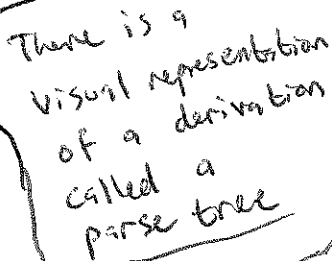 There is a
visual representation
of a derivation
called a
parse tree